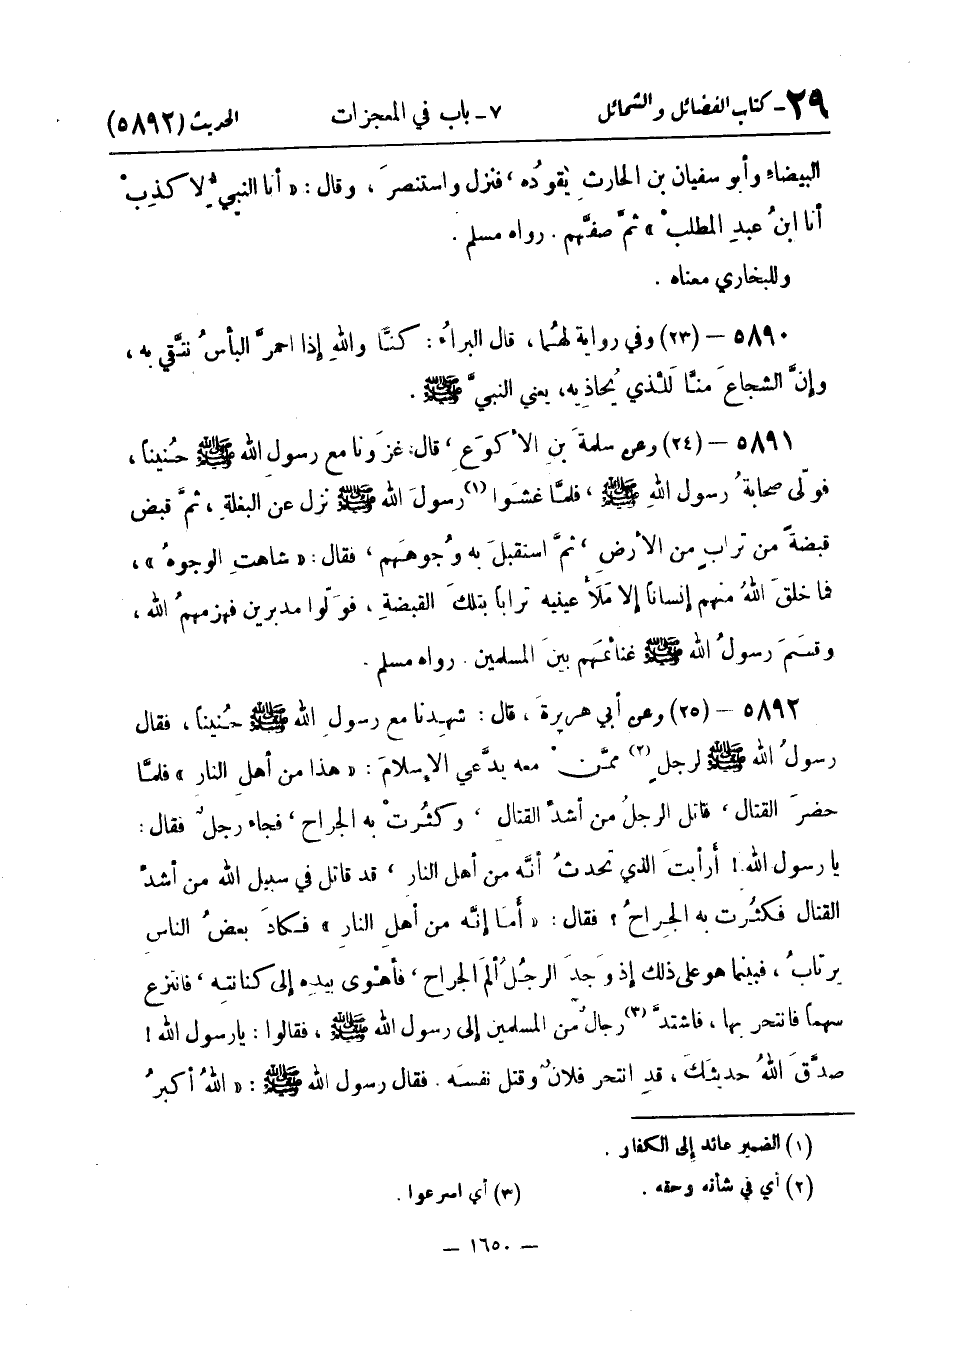 ٢٩- كتاب الفضائل والشمائل ٧- باب في المعجزات الحديث (٥٨٩٢)
البيضاءِ وأبو سفيان بن الحارثِ يقودُه، فنزل واستنصرَ، وقال: « أنا النبيُّ لا كذِبْ
أنا ابنُ عبدِ المطلبْ » ثمَّ صفَّهم. رواه مسلم.
وللبخاري معناه.
٥٨٩٠ – (٢٣) وفي رواية لهُما، قال البراءُ: كنَّا واللهِ إذا احمرَّ البأسُ نتَّقي به،
وإنَّ الشجاعَ منَّا لَلَّذي يُحاذِيه، يعني النبيَّ ﷺ.
٥٨٩١ – (٢٤) وعن سلمةَ بنِ الأكوَعِ، قال: غزَونا مع رسولِ الله ﷺ حُنيناً،
فولّى صحابةُ رسول اللهِ ﷺ، فلمَّا غشَوا (١) رسولَ الله ﷺ نزل عن البغلةِ، ثمَّ قبض
قبضةً من ترابٍ من الأرضِ، ثمَّ استقبلَ به وُجوهَهم، فقال: « شاهتِ الوجوهُ »،
فما خلقَ اللهُ منهم إنساناً إلا مَلَأ عينيه تراباً بتلكَ القبضةِ، فوَلّوا مدبرين فهزمهمُ الله،
وقسَمَ رسولُ الله ﷺ غنائمَهم بينَ المسلمين. رواه مسلم.
٥٨٩٢ – (٢٥) وعن أبي هريرةَ، قال: شهدنا مع رسولِ الله ﷺ حُنيناً، فقال
رسولُ الله ﷺ لرجلٍ (٢) ممَّنْ معه يدَّعي الإسلامَ: « هذا من أهلِ النار » فلمَّا
حضرَ القتال، قاتل الرجلُ من أشدِّ القتالِ، وكثُرتْ به الجراح، فجاء رجلٌ فقال:
يا رسول الله! أرأيتَ الذي تحدثُ أنَّه من أهل النارِ، قد قاتل في سبيل الله من أشدِّ
القتال فكثُرت به الجِراحُ؟ فقال: « أمَا إنَّه من أهلِ النارِ » فكادَ بعضُ الناسِ
يرتابُ، فبينما هو على ذلك إذ وَجدَ الرجُلُ ألمَ الجراح، فأهْوى بيدِه إلى كنانتِه، فانتزع
سهماً فانتحر بها، فاشتدَّ (٣) رجالٌ من المسلمين إلى رسول الله ﷺ، فقالوا: يا رسول الله!
صدَّقَ اللهُ حديثكَ، قدِ انتحر فلانٌ وقتل نفسَه. فقال رسول الله ﷺ: « اللهُ أكبرُ
(١) الضمير عائد إلى الكفار.
(٢) أي في شأنه وحقه. (٣) أي اسرعوا.
– ١٦٥٠ –